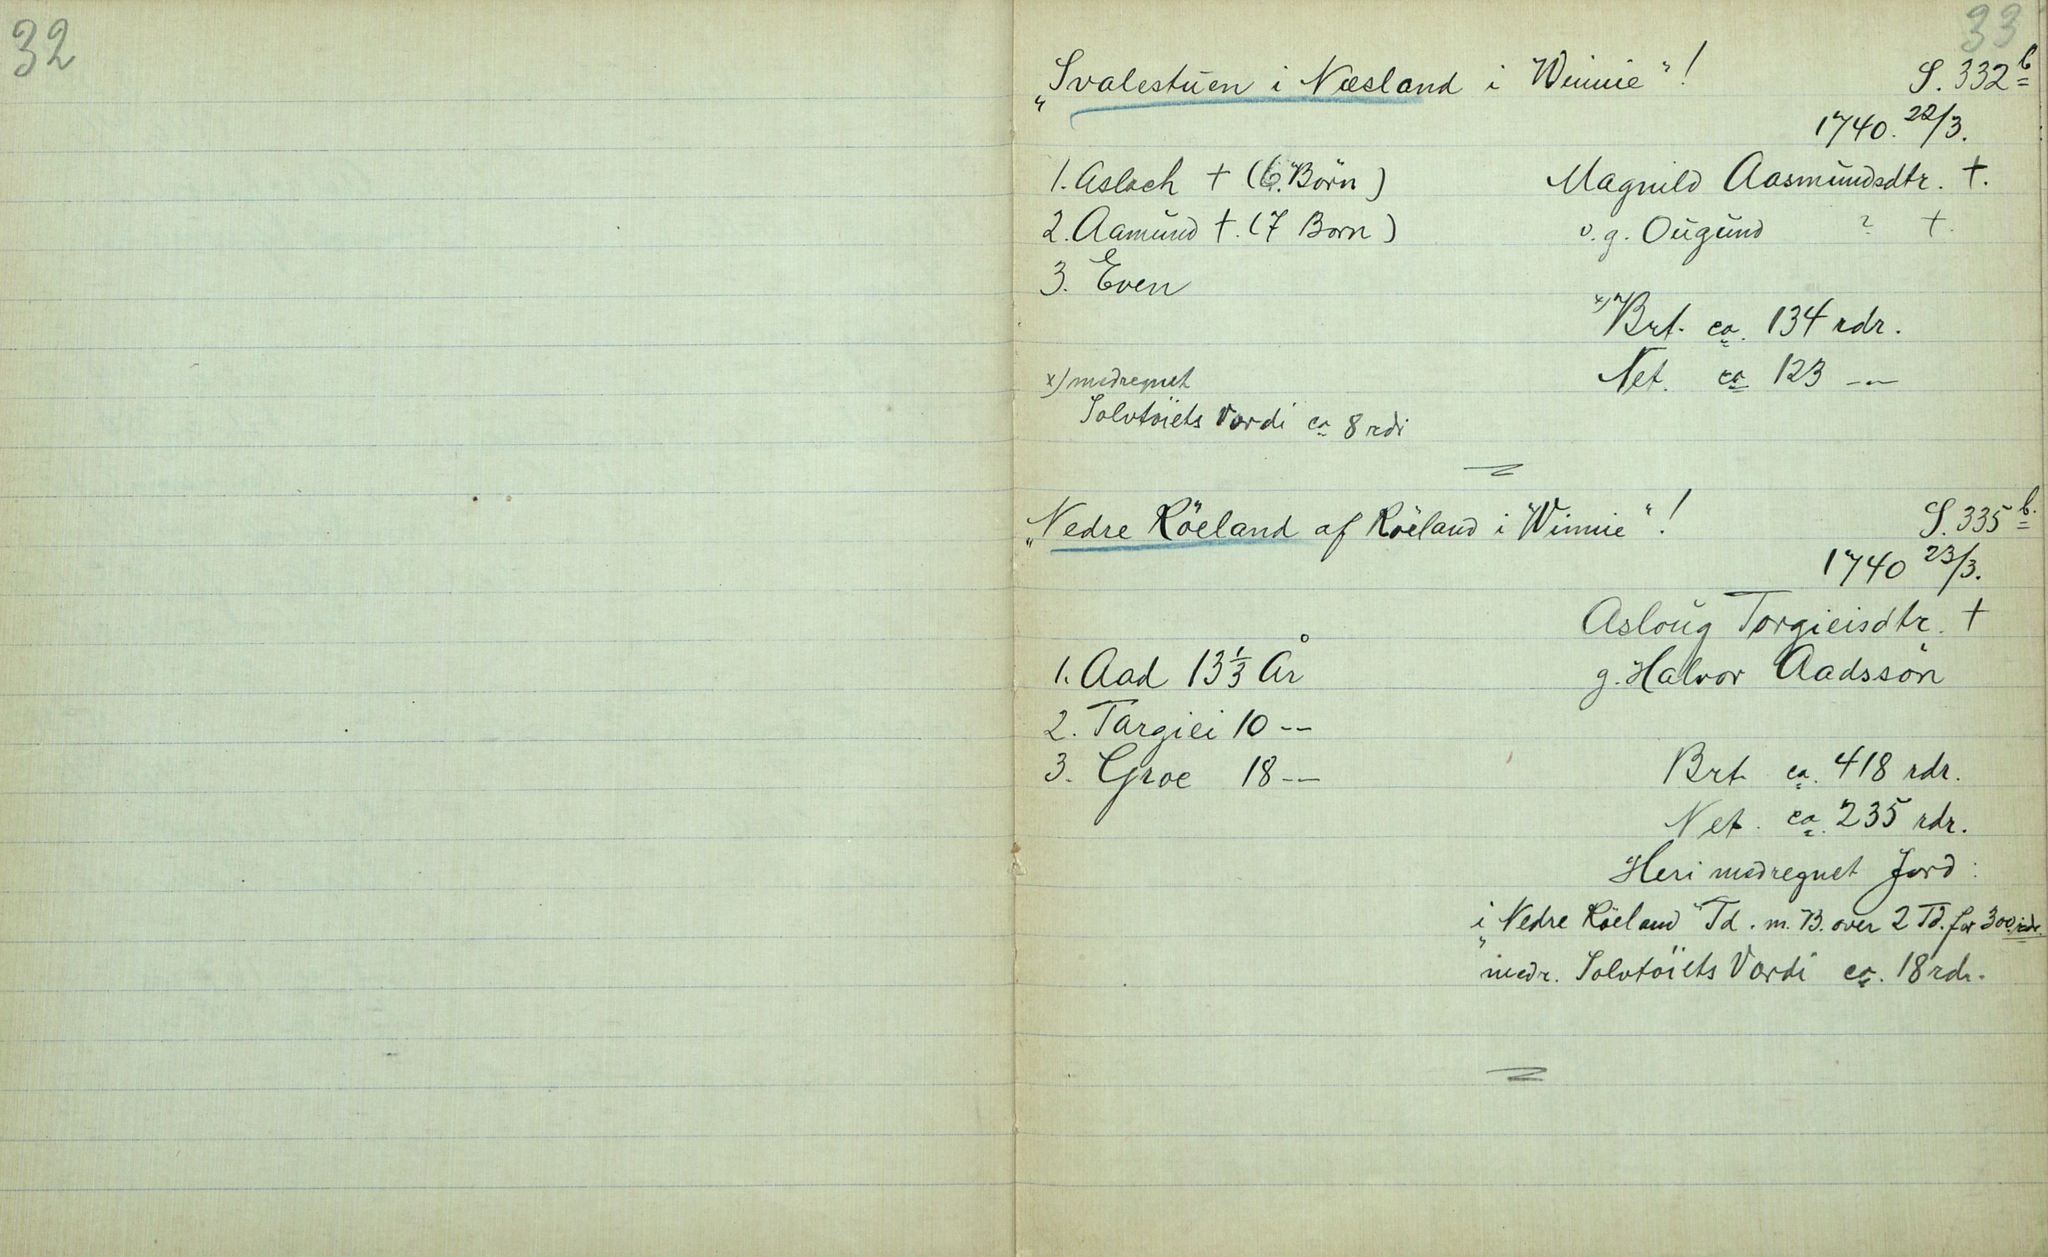 32
33
„Svalestuen i Næsland i Winnie“! S. 332 b
1740. 22/3.
1. Aslach † (6 Börn) Magnild Aasmundsdtr. †.
2. Aamund †. (7 Börn) v. g. Ougund ? †.
3. Even
x) Brt. ca. 134 rdr.
Net. ca 123 -„-
x) medregnet
Solvtöiets Værdi ca 8 rdr
„Nedre Röeland af Röeland i Winnie“! S. 335 b.
1740 23/3.
Asloug Torgieisdtr. †
1. Aad 13 1/3 År g. Halvor Aadssön
2. Targiei 10 -„-
3. Groe 18 -„-
Brt ca. 418 rdr.
Net. ca. 235 rdr.
Heri medregnet Jord:
i „Nedre Röeland“ Td. m. B. over 2 Td. for 300 rdr.
medr. Solvtöiets Værdi ca. 18 rdr.